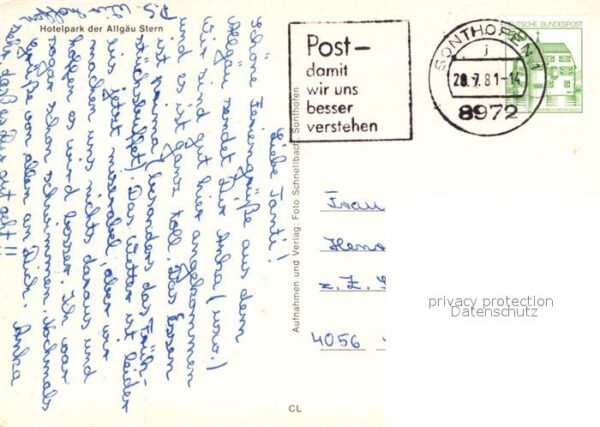 Hotelpark der Allgäu Stern
Liebe Tanti!
Schöne Feriengrüße aus dem
Allgäu sendet Dir Anka (usw.)
Wir sind gut hier angekommen
und es ist ganz toll. Das Essen
ist prima (besonders das Früh-
stücksbuffet) Das Wetter ist leider
bis jetzt miserabel, aber wir
machen uns nichts daraus und
hoffen es wird besser. Ich war
sogar schon schwimmen. Nochmals
Grüße von allen an Dich. Anka
P.S. Wir hoffen
sehr daß es Dir gut geht!!
Aufnahmen und Verlag: Foto Schnellbach, Sonthofen
CL
Post-
damit
wir uns
besser
verstehen
SONTHOFEN 1
j
28.-7.81-14
8972
DEUTSCHE BUNDESPOST
Frau
Hen
z. Z.
4056
privacy protection
Datenschutz